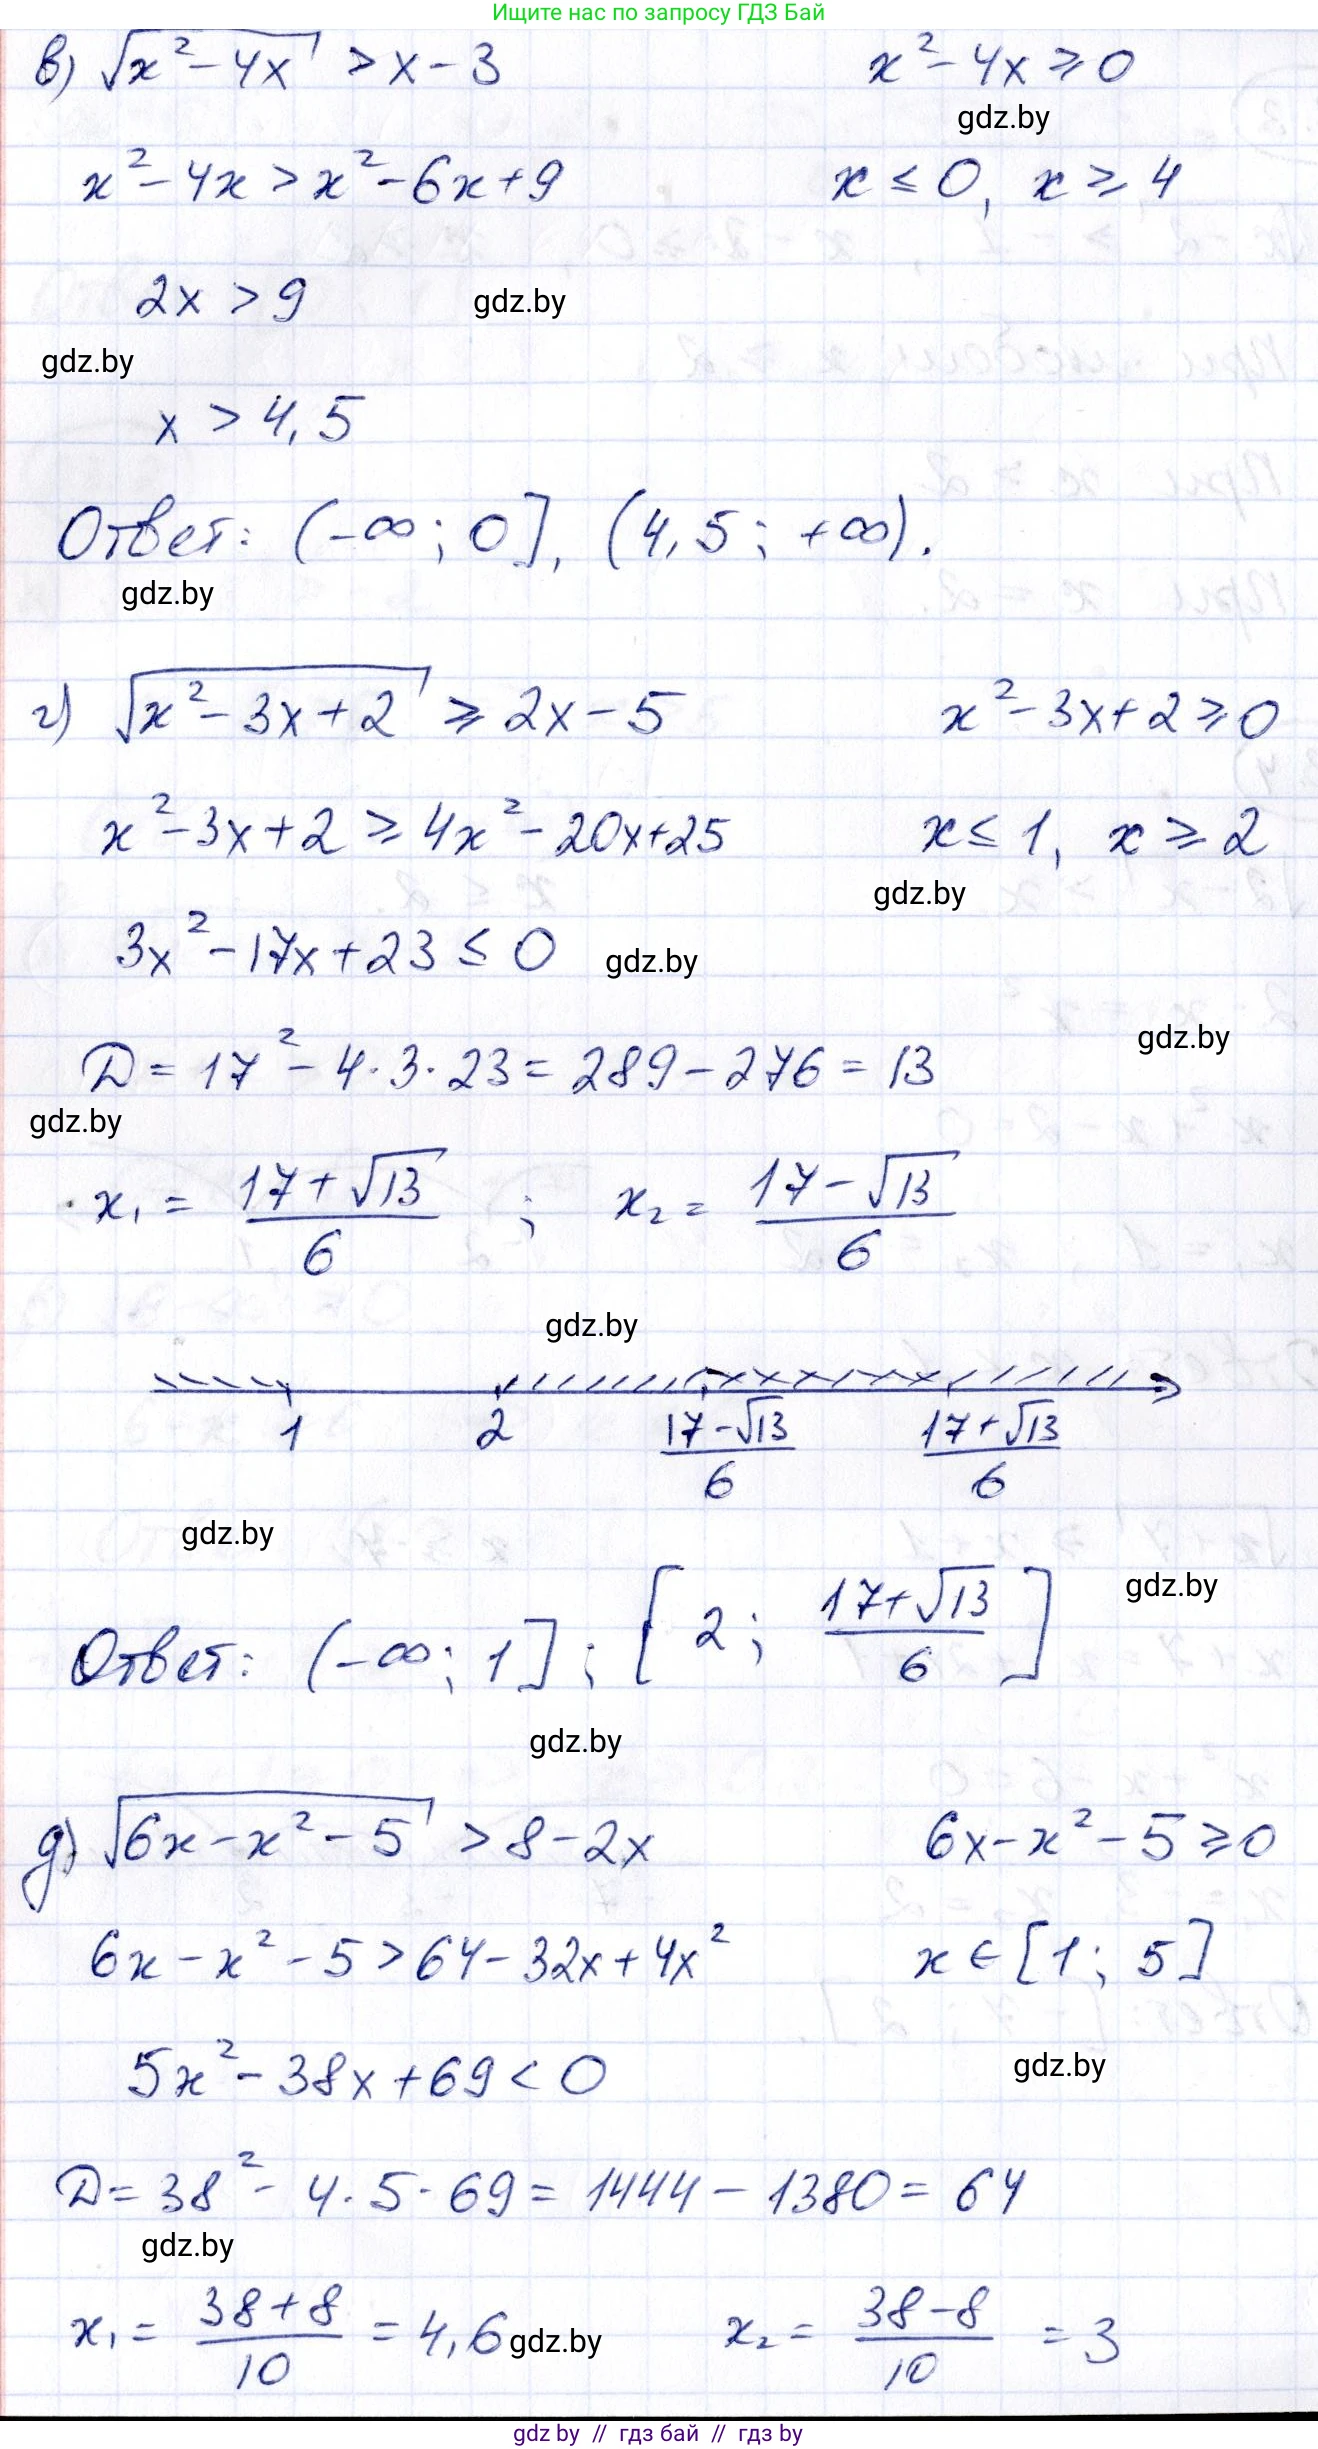 Ищите нас по запросу ГДЗ Бай
в) √(x² - 4x) > x - 3     x² - 4x ≥ 0
gdz.by
x² - 4x > x² - 6x + 9     x ≤ 0, x ≥ 4
2x > 9     gdz.by
gdz.by
x > 4,5
Ответ: (-∞; 0], (4,5; +∞).
gdz.by
г) √(x² - 3x + 2) ≥ 2x - 5     x² - 3x + 2 ≥ 0
x² - 3x + 2 ≥ 4x² - 20x + 25     x ≤ 1, x ≥ 2
gdz.by
3x² - 17x + 23 ≤ 0     gdz.by
gdz.by
D = 17² - 4·3·23 = 289 - 276 = 13
gdz.by
x₁ = (17 + √13)/6 ; x₂ = (17 - √13)/6
gdz.by
1     2     (17 - √13)/6     (17 + √13)/6
gdz.by
gdz.by
Ответ: (-∞; 1]; [2; (17 + √13)/6]
gdz.by
д) √(6x - x² - 5) > 8 - 2x     6x - x² - 5 ≥ 0
6x - x² - 5 > 64 - 32x + 4x²     x ∈ [1; 5]
gdz.by
5x² - 38x + 69 < 0
D = 38² - 4·5·69 = 1444 - 1380 = 64
gdz.by
x₁ = (38 + 8)/10 = 4,6 gdz.by     x₂ = (38 - 8)/10 = 3
gdz by // гдз бай // гдз by